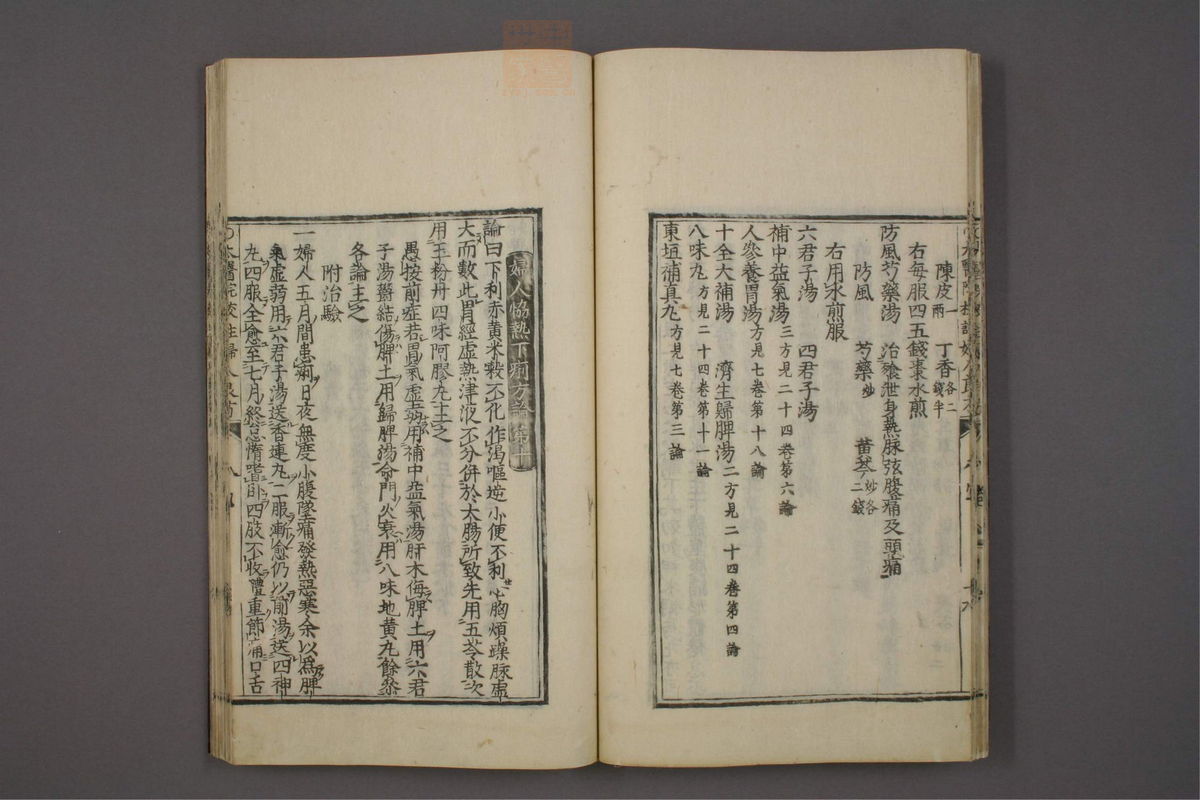 陳皮一兩　丁香各二錢半
右每服四五錢棗水煎
防風芍藥湯　治飧泄身熱脉弦腹痛及頭痛
防風　芍藥炒　黄芩炒各二錢
右用水煎服
六君子湯　四君子湯
補中益氣湯三方見二十四卷第六論
人參養胃湯方見七卷第十八論
十全大補湯　濟生歸脾湯二方見二十四卷第四論
八味丸方見二十四卷第十一論
東垣補真丸方見七卷第三論
婦人協熱下痢方論第十
論曰下利赤黄米穀不化作渴嘔逆小便不利心胸煩躁脉虚
大而數此胃經虚熱津液不分併於大腸所致先用五苓散次
用玉粉丹四味阿膠丸主之
愚按前症若胃氣虚弱用補中益氣湯肝木侮脾土用六君
子湯鬱結傷脾土用歸脾湯命門火衰用八味地黄丸餘叅
各論主之
附治驗
一婦人五月間患痢日夜無度小腹墜痛發熱惡寒余以爲脾
氣虚弱用六君子湯送香連丸二服漸愈仍以前湯送四神
丸四服全愈至七月終怠惰嗜卧四肢不收體重節痛口舌